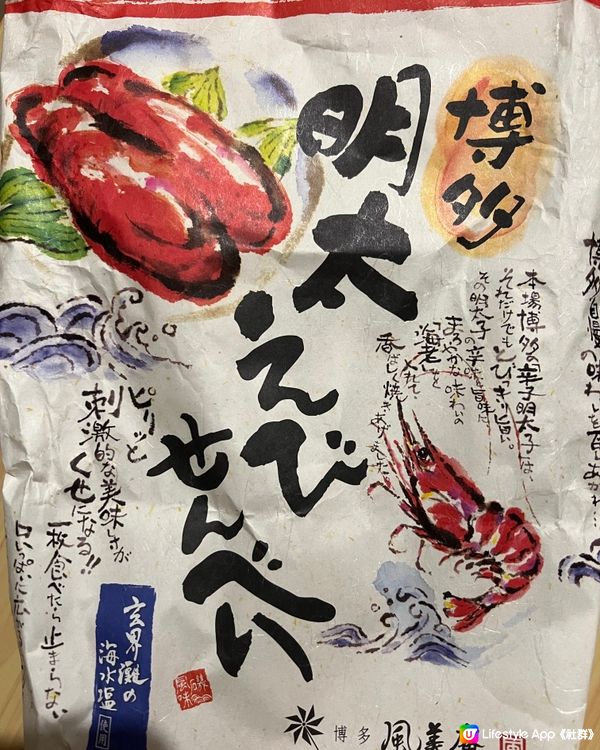 博多
明太
えび
せんべい
本場博多の辛子明太子は
それだけでもとびっきり旨い。
その明太子の辛味と旨味に
まろやかな味わの
「海老」と
香ばしく焼きあげました
ピリッと
刺激的な美味しさが
クセになる!!
一枚食べたら止まらない
口いっぱいに広
玄界灘の
海水塩
使用
風味
博多
風美庵
U Lifestyle App《社群》